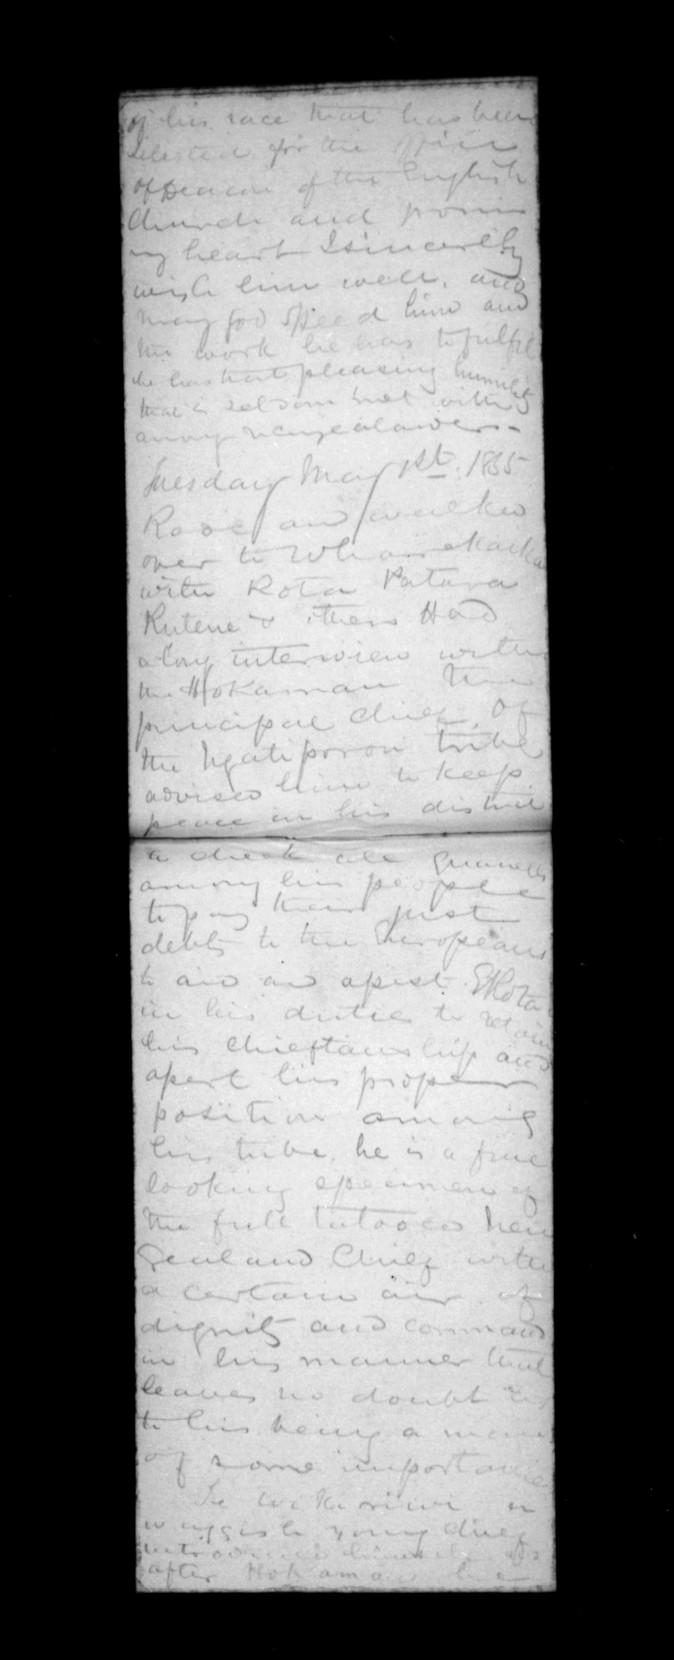 of his race that has been
selected for the office
of Deacon of the English
Church and from
my heart I sincerely
wish him well, and
may God speed him and
the work he has to fulfil
he has that pleasing humility
that is seldom met with
among New Zealanders -
Tuesday May 1st. 1855
Rose and walked
over to Wharekaka
with Rota Patara
Rutene & others Had
a long interview with
the Hokamau the
principal Chief. Of
the Ngatiporou tribe
advised him to keep
peace in his district
to check all quarrels
among his people
to pay their just
debts to the Europeans
to aid and assist Rota
in his duties to retain
his chieftanship and
assert his proper
position among
his tribe. he is a fine
looking specimen of
the full tatooed New
Zealand Chief with
a certain air of
dignity and command
in his manner that
leaves no doubt as
to his being a man
of some importance
Te a
waggish young chief
introduced himself
after Hokamau